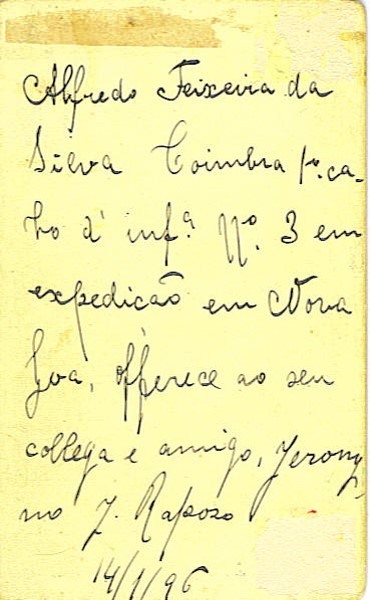 Alfredo Teixeira da
Silva Coimbra 1º. ca-
bo d' infª. Nº. 3 em
expedição em Nova
Goa, offerece ao seu
collega e amigo, Jerony-
mo J. Rapozo
14/1/96